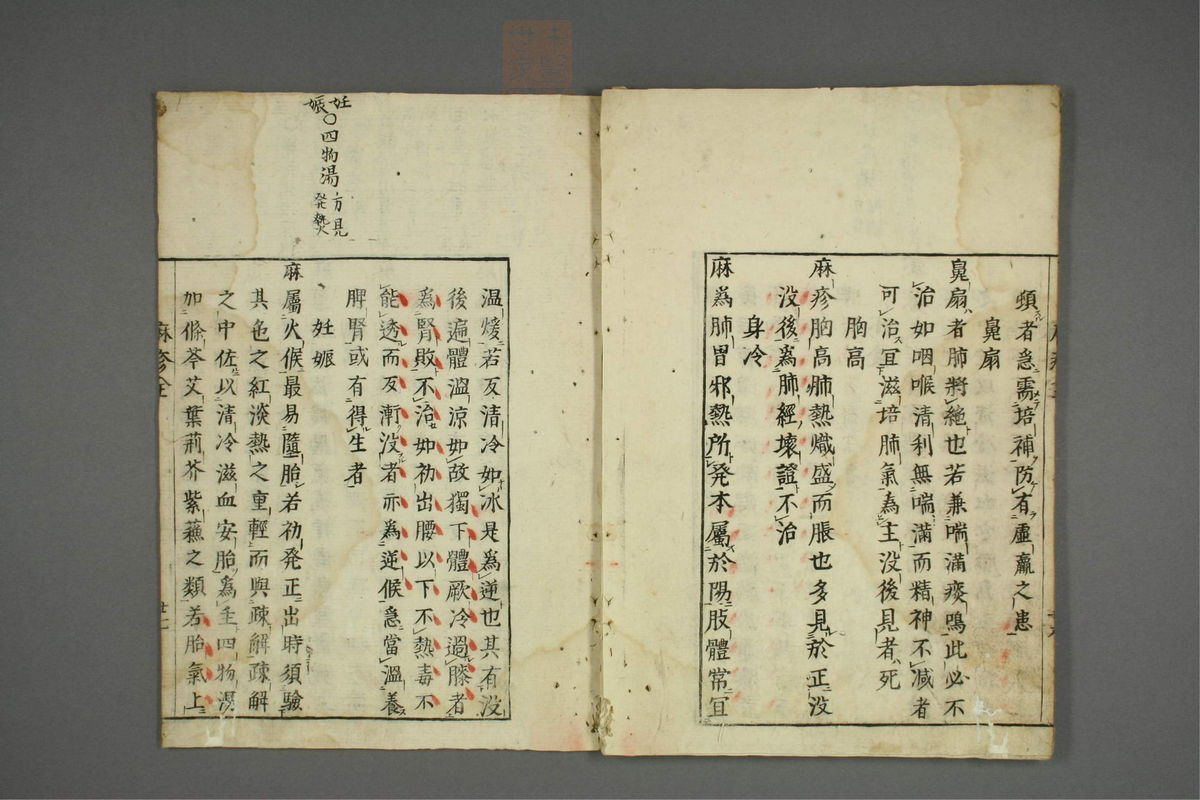 頊者急需培補防有虛羸之患
鼻扇
鼻扇者肺將絶也若兼喘滿痰鳴此必不
治如咽喉清利無喘滿而精神不減者
可治冝滋培肺氣為主没後見者死
胸高
麻疹胸高肺熱熾盛而脹也多見於正没
没後爲肺經壊證不治
身冷
麻爲肺胃邪熱所発本屬於陽肢體常冝
温煖若反清冷如冰是爲逆也其有没
後遍體溫涼如故獨下體厥冷過膝者
爲腎敗不治如初出腰以下不熱毒不
能透而反漸没者亦爲逆候急當溫養
脾腎或有得生者
妊娠
麻屬火候最易墮胎若初発正出時須驗
其色之紅淡熱之重輕而與疎解疎解
之中佐以清冷滋血安胎爲主四物湯
如條芩艾葉荊芥紫蘓之類若胎氣上
妊娠
〇四物湯方見発熱
麻疹全